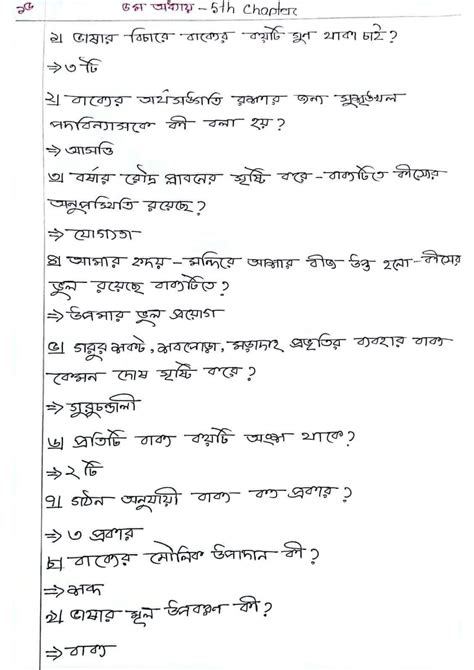 ৫ম অধ্যায় - 5th Chapter
১। ভাষার বিচারে বাক্যের কয়টি গুণ থাকা চাই?
⇒ ৩ টি
২। বাক্যের অর্থসঙ্গতি রক্ষার জন্য সুশৃঙ্খল
পদবিন্যাসকে কী বলা হয়?
⇒ আসত্তি
৩। বর্ষার রৌদ্র প্লাবনের সৃষ্টি করে - বাক্যটিতে কীসের
অনুপস্থিতি রয়েছে?
⇒ যোগ্যতা
৪। আমার হৃদয় - মন্দিরে আশার বীজ উপ্ত হলো - কীসের
ভুল রয়েছে বাক্যটিতে?
⇒ উপমার ভুল প্রয়োগ
৫। গরুর শকট, শবপোড়া, মড়াদাহ প্রভৃতির ব্যবহার বাক্য
কেমন দোষ সৃষ্টি করে?
⇒ গুরুচন্ডালী
৬। প্রতিটি বাক্যে কয়টি অংশ থাকে?
⇒ ২ টি
৭। গঠন অনুযায়ী বাক্য কত প্রকার?
⇒ ৩ প্রকার
৮। বাক্যের মৌলিক উপাদান কী?
⇒ শব্দ
৯। ভাষার মূল উপকরণ কী?
⇒ বাক্য